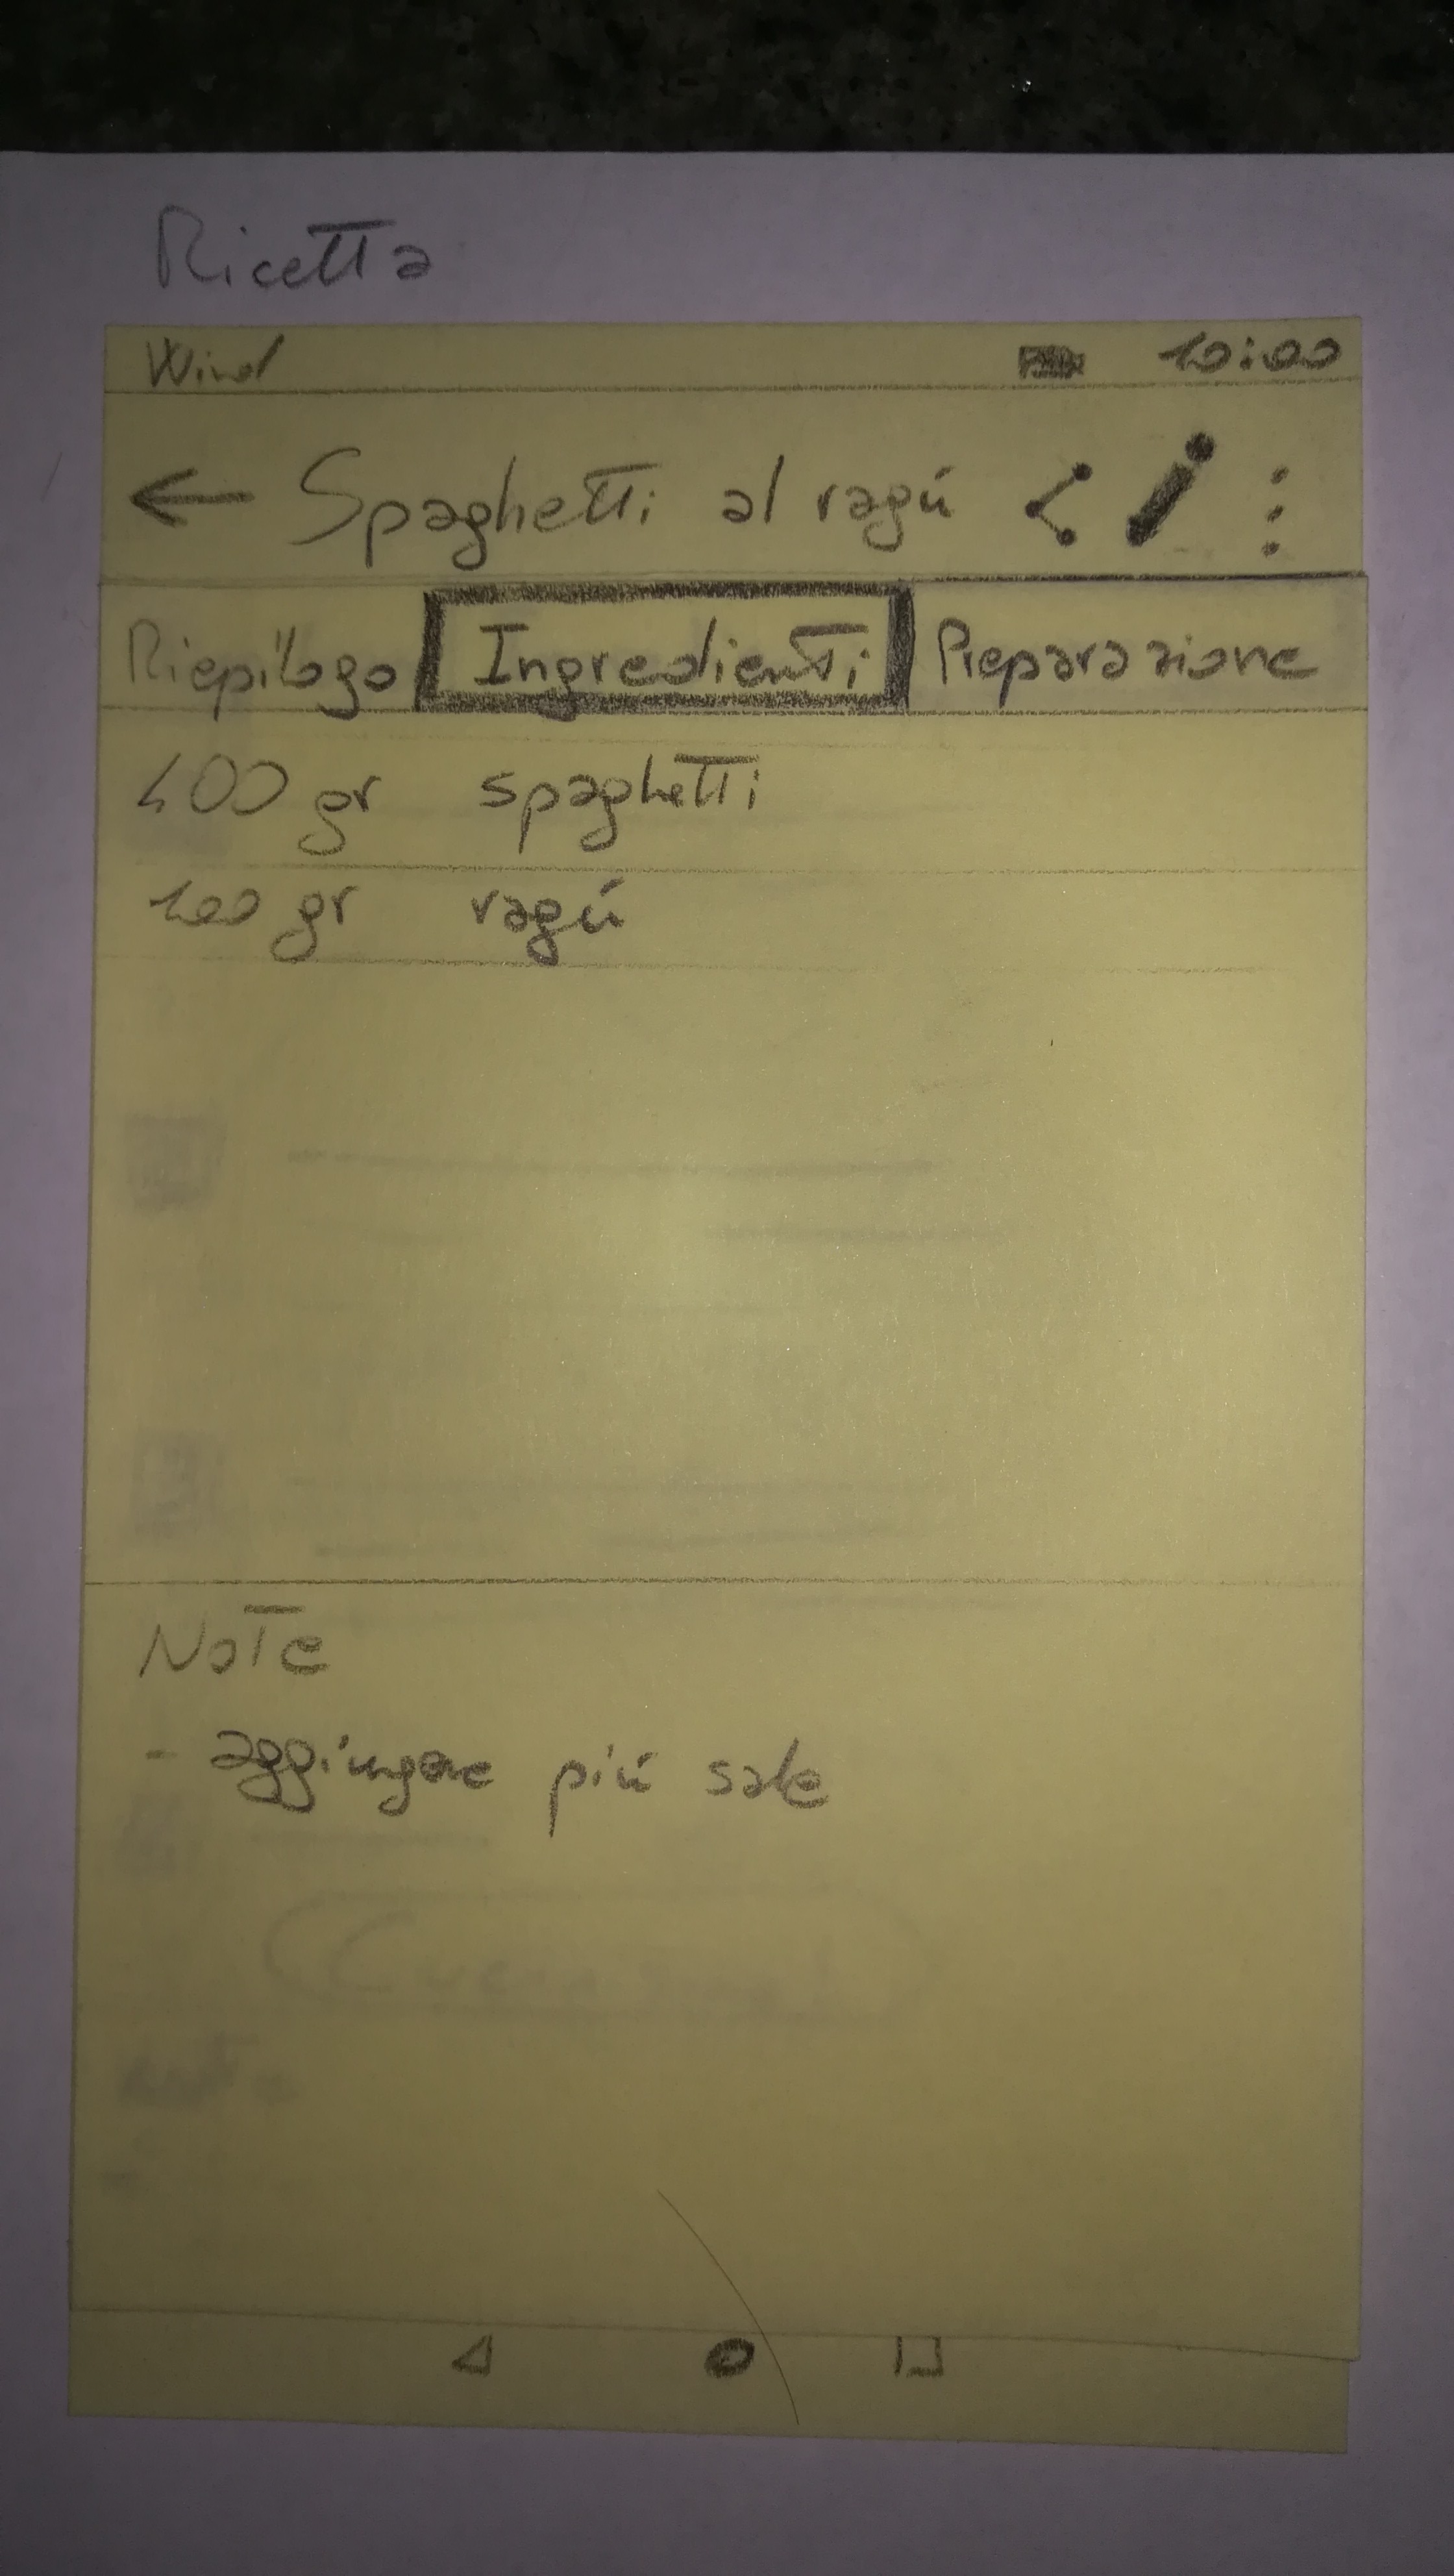 Ricetta
Wind 10:00
Spaghetti al ragú
Riepilogo Ingredienti Preparazione
400 gr spaghetti
100 gr ragú
Note
- aggiungere piú sale